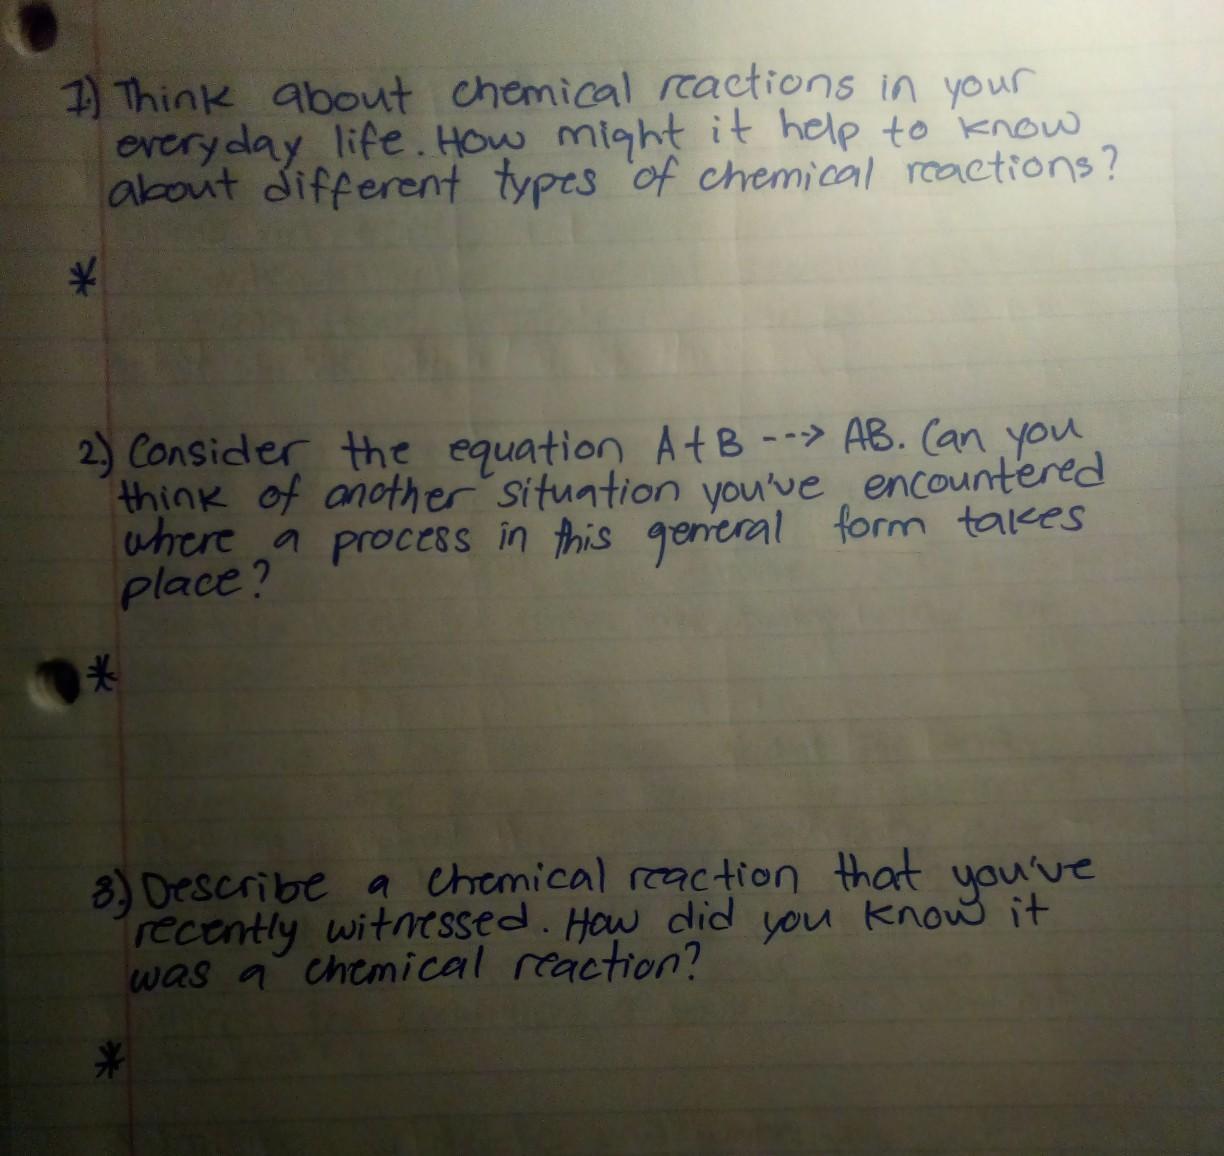 1.) Think about chemical reactions in your
everyday life. How might it help to know
about different types of chemical reactions?
*
2.) Consider the equation A + B ---> AB. Can you
think of another situation you've encountered
where a process in this general form takes
place?
*
3.) Describe a chemical reaction that you've
recently witnessed. How did you know it
was a chemical reaction?
*